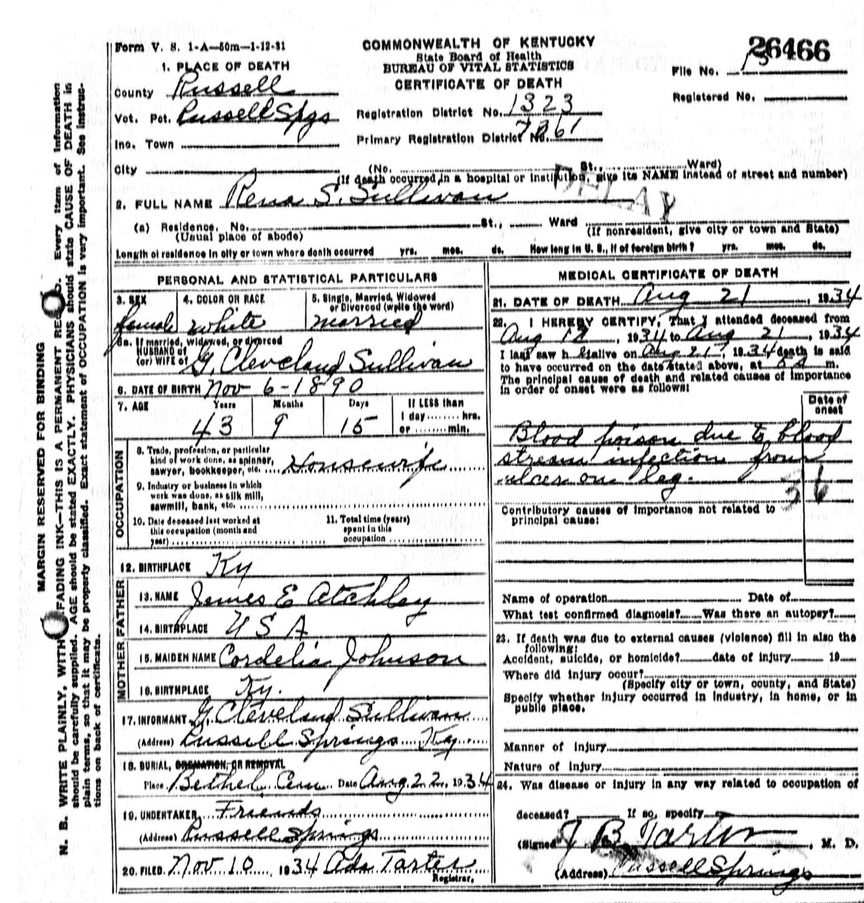 Form V. S. 1-A—50m—1-12-31
COMMONWEALTH OF KENTUCKY
State Board of Health
BUREAU OF VITAL STATISTICS
CERTIFICATE OF DEATH
26466
File No.
Registered No.
1. PLACE OF DEATH
County Russell
Vot. Pct. Russell Spgs
Inc. Town
City
Registration District No. 1323
Primary Registration District No. 7861
(No. St., Ward)
(If death occurred in a hospital or institution, give its NAME instead of street and number)
DELAY
2. FULL NAME Rena S. Sullivan
(a) Residence. No. St., Ward
(Usual place of abode) (If nonresident, give city or town and State)
Length of residence in city or town where death occurred yrs. mos. ds. How long in U. S., if of foreign birth? yrs. mos. ds.
PERSONAL AND STATISTICAL PARTICULARS
3. SEX 4. COLOR OR RACE 5. Single, Married, Widowed or Divorced (write the word)
female white married
5a. If married, widowed, or divorced
HUSBAND of
(or) WIFE of G. Cleveland Sullivan
6. DATE OF BIRTH Nov 6-1890
7. AGE Years Months Days If LESS than
1 day........hrs.
or........min.
43 9 15
OCCUPATION
8. Trade, profession, or particular
kind of work done, as spinner,
sawyer, bookkeeper, etc. Housewife
9. Industry or business in which
work was done, as silk mill,
sawmill, bank, etc.
10. Date deceased last worked at
this occupation (month and
year)
11. Total time (years)
spent in this
occupation
12. BIRTHPLACE Ky
FATHER
13. NAME James E Atchley
14. BIRTHPLACE U S A
MOTHER
15. MAIDEN NAME Cordelia Johnson
16. BIRTHPLACE Ky.
17. INFORMANT G. Cleveland Sullivan
(Address) Russell Springs Ky
18. BURIAL, CREMATION, OR REMOVAL
Place Bethel Cem Date Aug 22 1934
19. UNDERTAKER Friends
(Address) Russell Springs
20. FILED Nov 10 1934 Ada Tarter
Registrar.
MEDICAL CERTIFICATE OF DEATH
21. DATE OF DEATH Aug 21, 1934
22. I HEREBY CERTIFY, That I attended deceased from
Aug 12, 1934 to Aug 21, 1934
I last saw h alive on Aug 21, 1934 death is said
to have occurred on the date stated above, at m.
The principal cause of death and related causes of importance
in order of onset were as follows:
Date of
onset
Blood poison due to blood
stream infection from
ulcer on leg.
36
Contributory causes of importance not related to
principal cause:
Name of operation Date of
What test confirmed diagnosis? Was there an autopsy?
23. If death was due to external causes (violence) fill in also the
following:
Accident, suicide, or homicide? date of injury 19
Where did injury occur?
(Specify city or town, county, and State)
Specify whether injury occurred in industry, in home, or in
public place.
Manner of Injury
Nature of Injury
24. Was disease or injury in any way related to occupation of
deceased? If so, specify
(Signed) J B Tarter, M. D.
(Address) Russell Springs
MARGIN RESERVED FOR BINDING
N. B. WRITE PLAINLY, WITH FADING INK—THIS IS A PERMANENT RE D. Every item of information
should be carefully supplied. AGE should be stated EXACTLY. PHYSICIANS should state CAUSE OF DEATH in
plain terms, so that it may be properly classified. Exact statement of OCCUPATION is very important. See instruc-
tions on back of certificate.